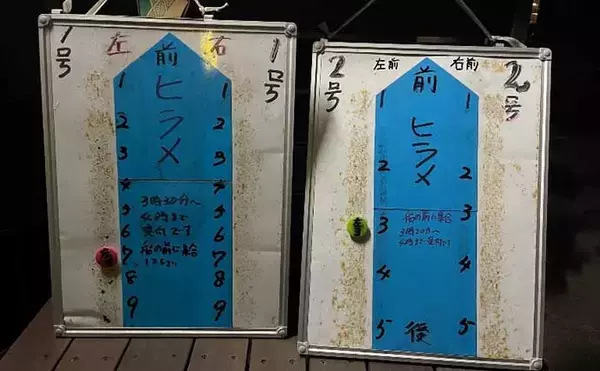 1号
左
前
右
1号
ヒラメ
1
2
3
4
5
6
7
8
9
1
2
3
4
5
6
7
8
9
3時30分〜
4時まで
受付です
船の前に集
2号
左前
前
右前
2号
ヒラメ
1
2
3
4
5
1
2
3
4
5
船の前に集
3時30分〜
4時まで受付です
後